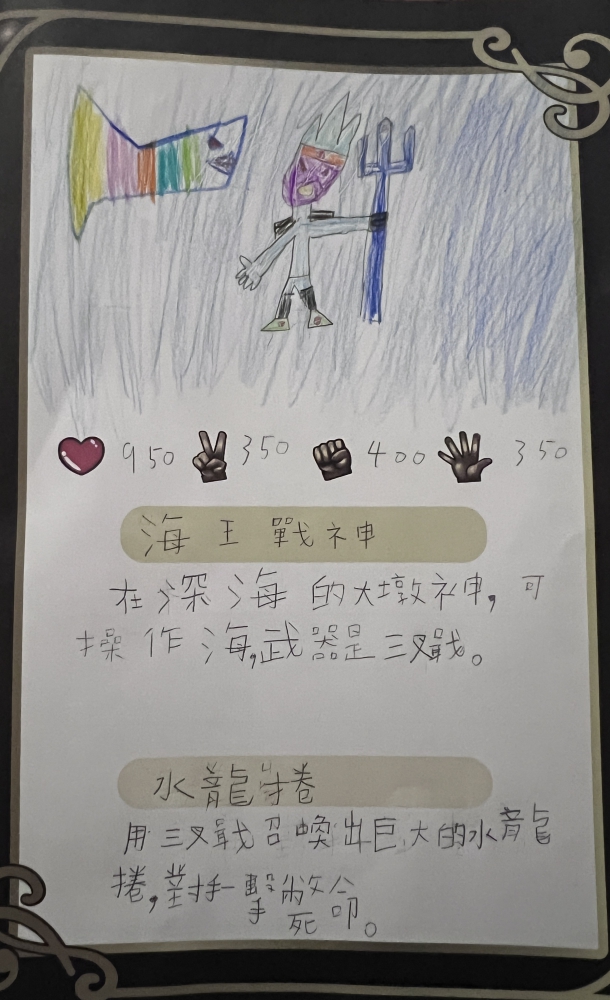 950 350 400 350
海王戰神
在深海的大墩神,可
操作海,武器是三叉戰。
水龍捲
用三叉戰召喚出巨大的水龍
捲,對手一擊
死